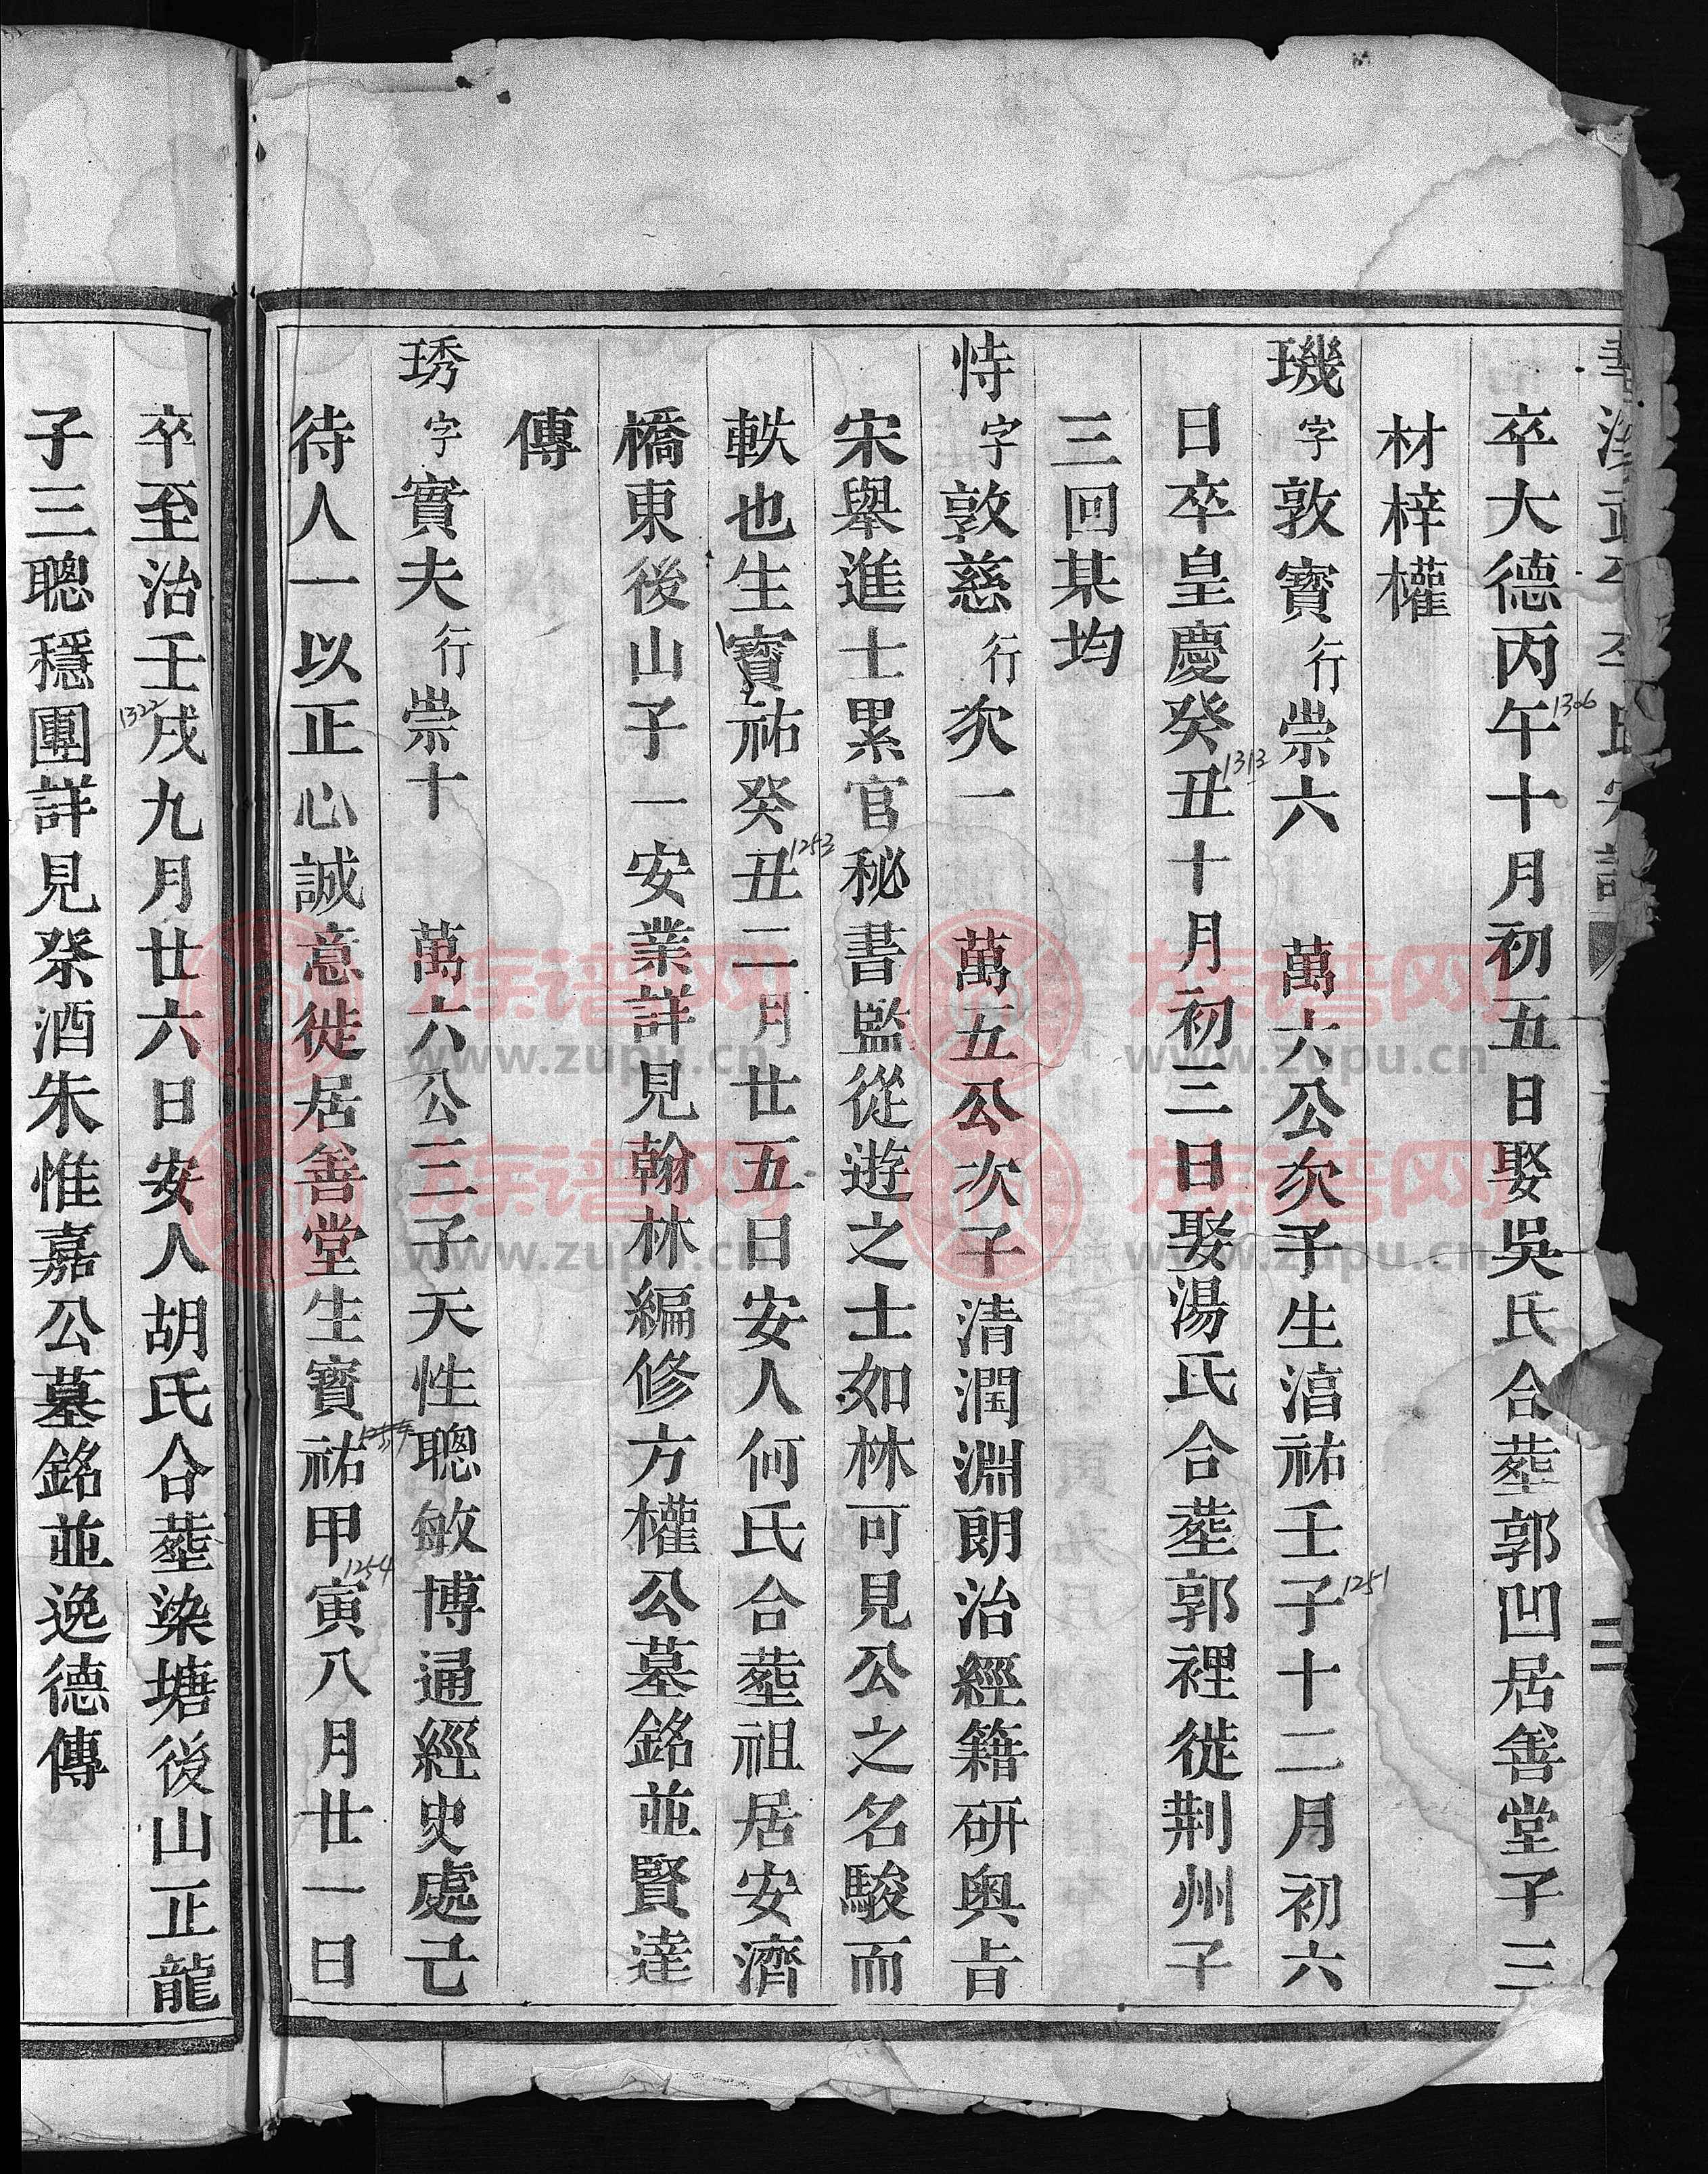 卒大德丙午十月初五日娶吳氏合塟郭凹居善堂子三
1306
材梓權
璣字敦寳行崇六 萬六公次子生淳祐壬子十二月初六
1251
日卒皇慶癸丑十月初三日娶湯氏合塟郭裡徙荆州子
1313
三回某均
恃字敦慈行次一 萬五公次子清潤淵朗治經籍研奥㫖
宋舉進士累官秘書監從遊之士如林可見公之名駿而
軼也生寳祐癸丑二月廿五日安人何氏合塟祖居安濟
1253
橋東後山子一安業詳見翰林編修方權公墓銘並賢達
傳
琇字實夫行崇十 萬六公三子天性聰敏博通經史處己
待人一以正心誠意徙居善堂生寳祐甲寅八月廿一日
1254
卒至治壬戌九月廿六日安人胡氏合塟染塘後山正龍
1322
子三聰穩團詳見祭酒朱惟嘉公墓銘並逸德傳
三
族谱网
www.zupu.cn
族谱网
www.zupu.cn
族谱网
www.zupu.cn
族谱网
www.zupu.cn